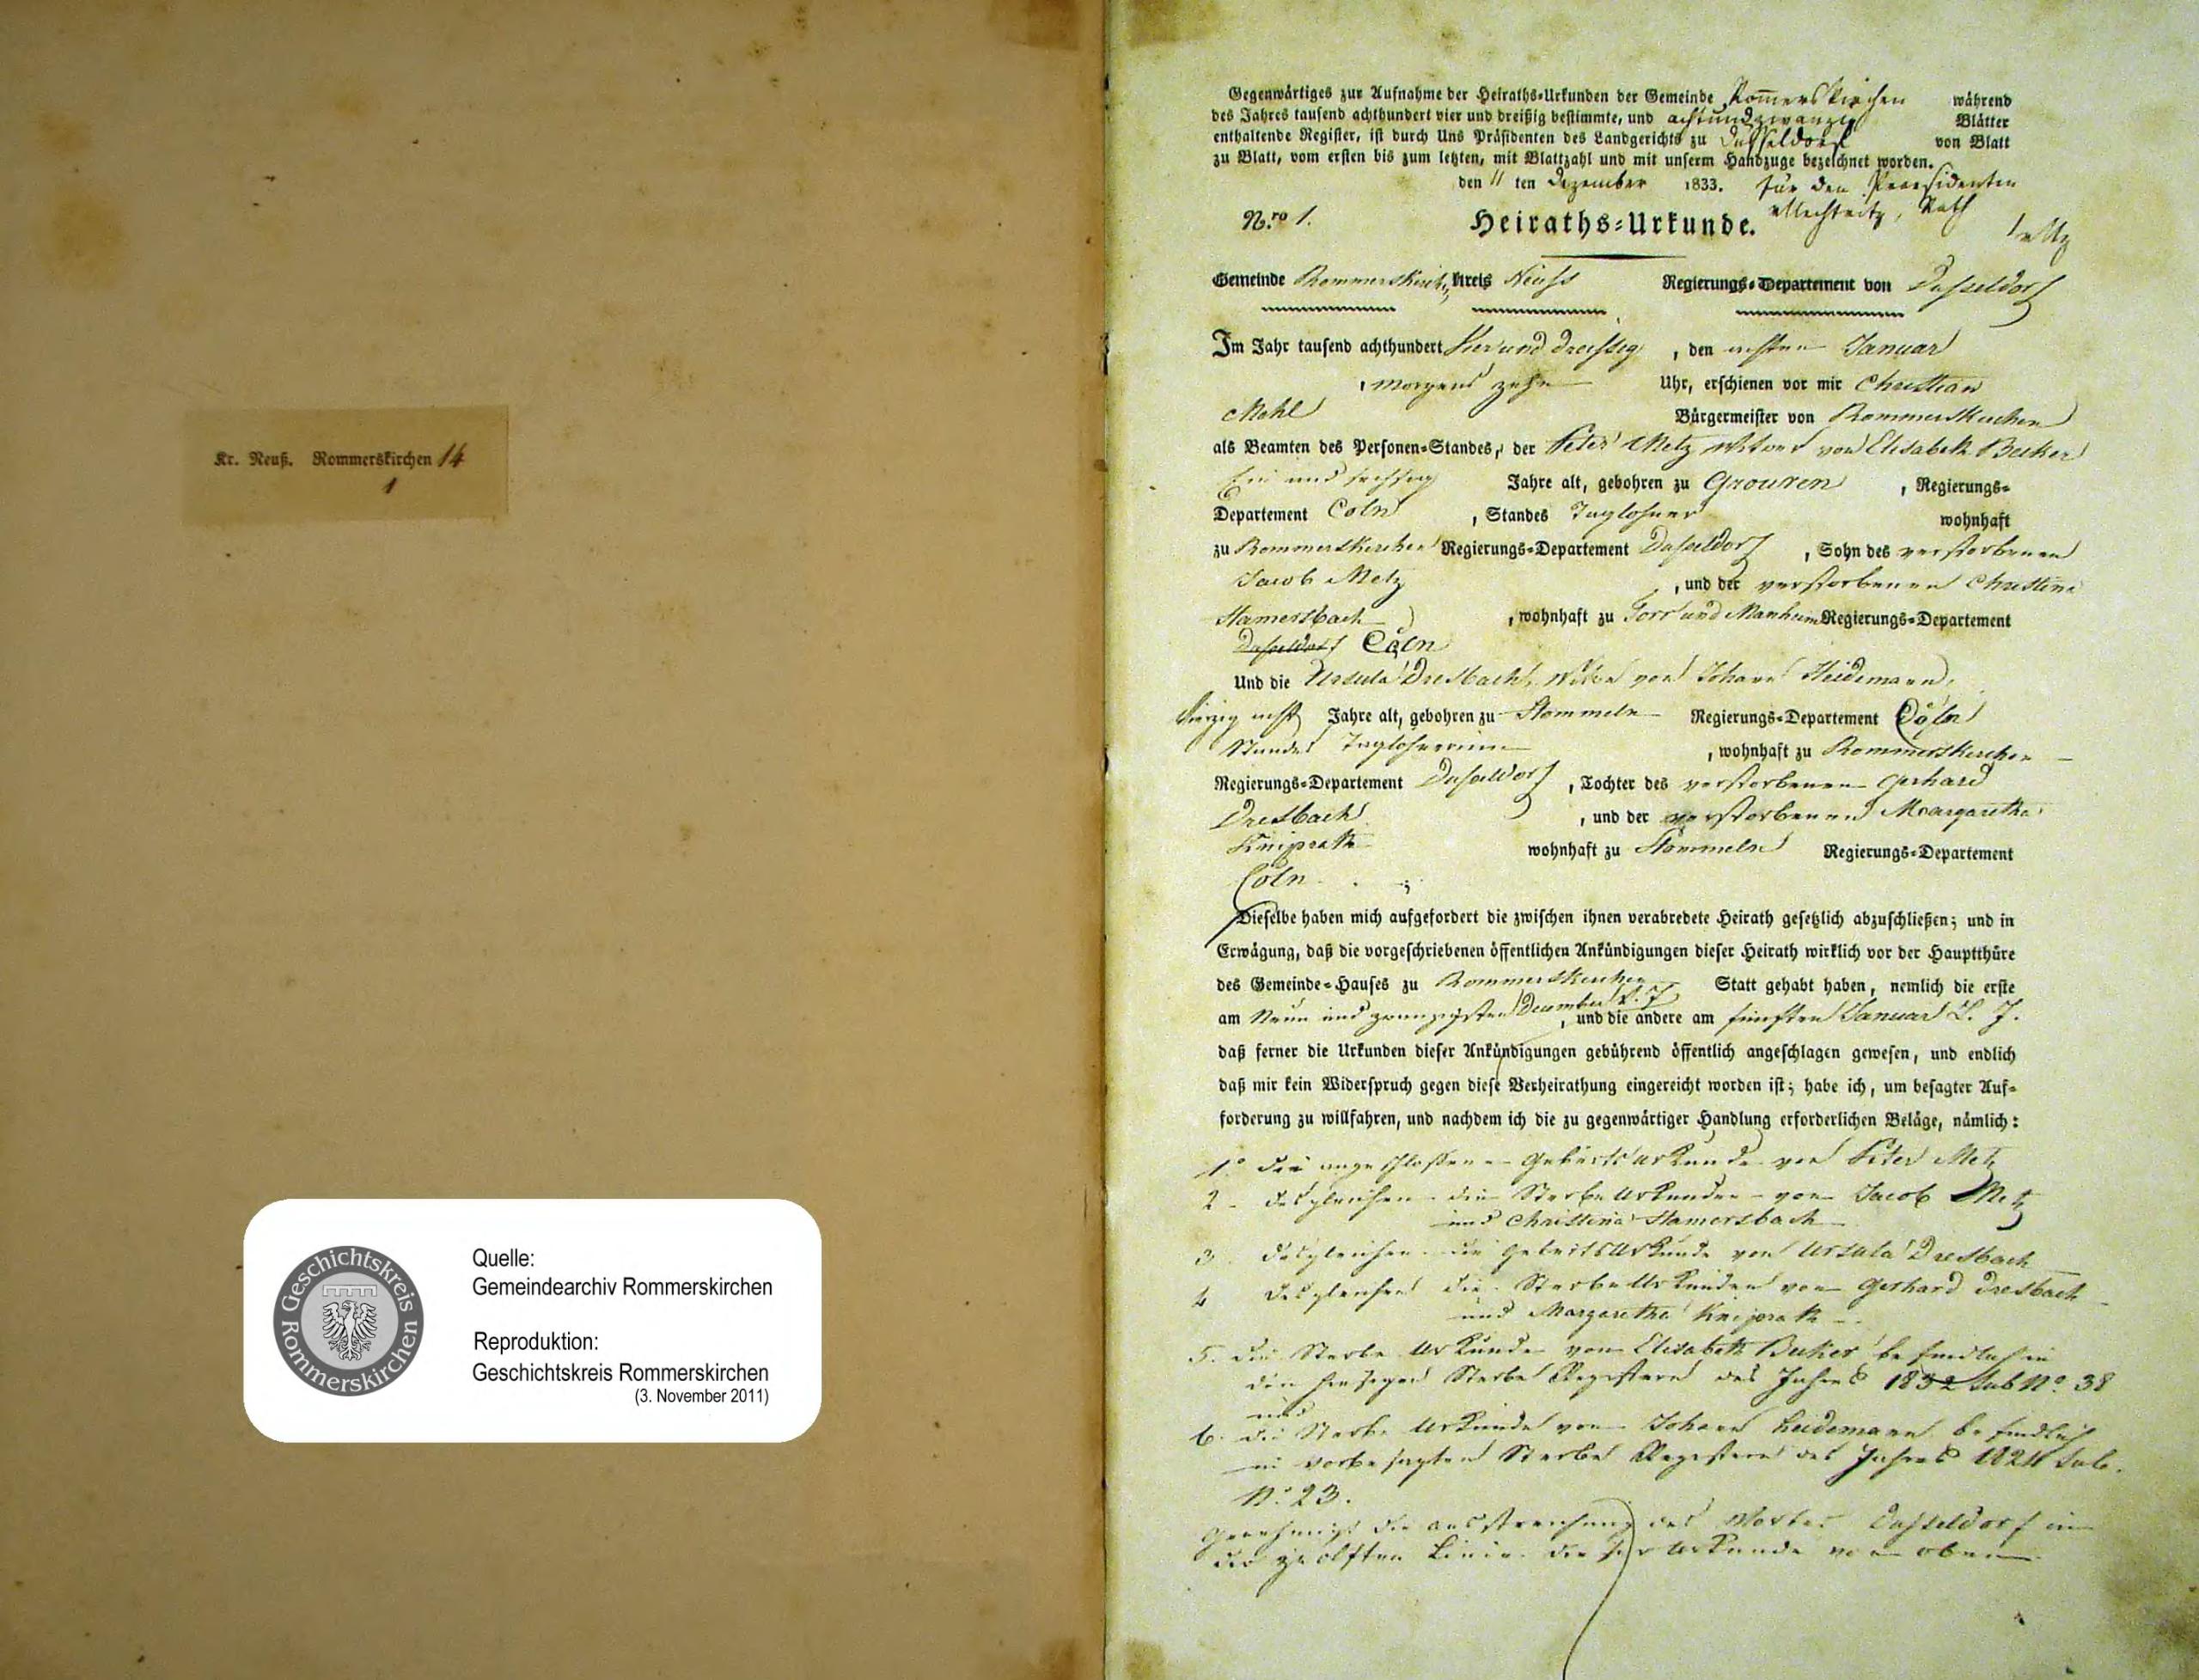 Kr. Neuß. Rommerskirchen 14
1
Geschichtskreis Rommerskirchen
Quelle:
Gemeindearchiv Rommerskirchen
Reproduktion:
Geschichtskreis Rommerskirchen
(3. November 2011)
Gegenwärtiges zur Aufnahme der Heiraths-Urkunden der Gemeinde Rom̅erskirchen während
des Jahres tausend achthundert vier und dreißig bestimmte, und achtundzwanzig Blätter
enthaltende Register, ist durch Uns Präsidenten des Landgerichts zu Düsseldorf von Blatt
zu Blatt, vom ersten bis zum letzten, mit Blattzahl und mit unserm Handzuge bezeichnet worden.
den 11 ten Dezember 1833. Für den Praesidenten
Rath
N.ro 1. Heiraths-Urkunde.
Gemeinde Rommerskirch, Kreis Neuss Regierungs-Departement von Dusseldorf
Im Jahr tausend achthundert Vier und dreissig, den achten Januar
, morgens zehn Uhr, erschienen vor mir Christian
Mohl Bürgermeister von Rommerskirchen
als Beamten des Personen-Standes, der Peter Metz Witwer von Elisabeth Becker
Ein und sechszig Jahre alt, gebohren zu Grouven, Regierungs-
Departement Coln, Standes Taglohner wohnhaft
zu Rommerskirchen Regierungs-Departement Dusseldorf, Sohn des verstorbenen
Jacob Metz, und der verstorbenen Christina
Hamersbach, wohnhaft zu Torr und Manheim Regierungs-Departement
Dusseldorf Cöln
Und die Ursula Dresbach, Witwe von Johann Heidemann,
vierzig acht Jahre alt, gebohren zu Stommeln Regierungs-Departement Cöln
Standes Taglohnerinn, wohnhaft zu Rommerskirchen
Regierungs-Departement Dusseldorf, Tochter des verstorbenen Gerhard
Dresbach, und der verstorbenen Margaretha
Kniprath wohnhaft zu Stommeln Regierungs-Departement
Coln.
Dieselbe haben mich aufgefordert die zwischen ihnen verabredete Heirath gesetzlich abzuschließen; und in
Erwägung, daß die vorgeschriebenen öffentlichen Ankündigungen dieser Heirath wirklich vor der Hauptthüre
des Gemeinde-Hauses zu Rommerskirchen Statt gehabt haben, nemlich die erste
am Neun und zwanzigsten December v. J., und die andere am fünften Januar l. J.
daß ferner die Urkunden dieser Ankündigungen gebührend öffentlich angeschlagen gewesen, und endlich
daß mir kein Widerspruch gegen diese Verheirathung eingereicht worden ist; habe ich, um besagter Auf-
forderung zu willfahren, und nachdem ich die zu gegenwärtiger Handlung erforderlichen Beläge, nämlich:
1° die angeschlossene Geburtsurkunde von Peter Metz
2 - desgleichen die Sterbe Urkunden von Jacob Metz
und Christina Hamersbach
3 desgleichen die Geburtsurkunde von Ursula Dresbach
4 desgleichen die Sterbe Urkunden von Gerhard Dresbach
und Margaretha Kniprath
5. die Sterbe Urkunde von Elisabeth Becker befindlich in
den hiesigen Sterbe Registern des Jahres 1832 sub N° 38
und
6. die Sterbe Urkunde von Johann Heidemann befindlich
in vorbesagten Sterbe Registern des Jahres sub.
N° 23.
Genehmigt die ausstreichung des Wortes Dusseldorf in
der zwölften Linie dieser Urkunde von oben